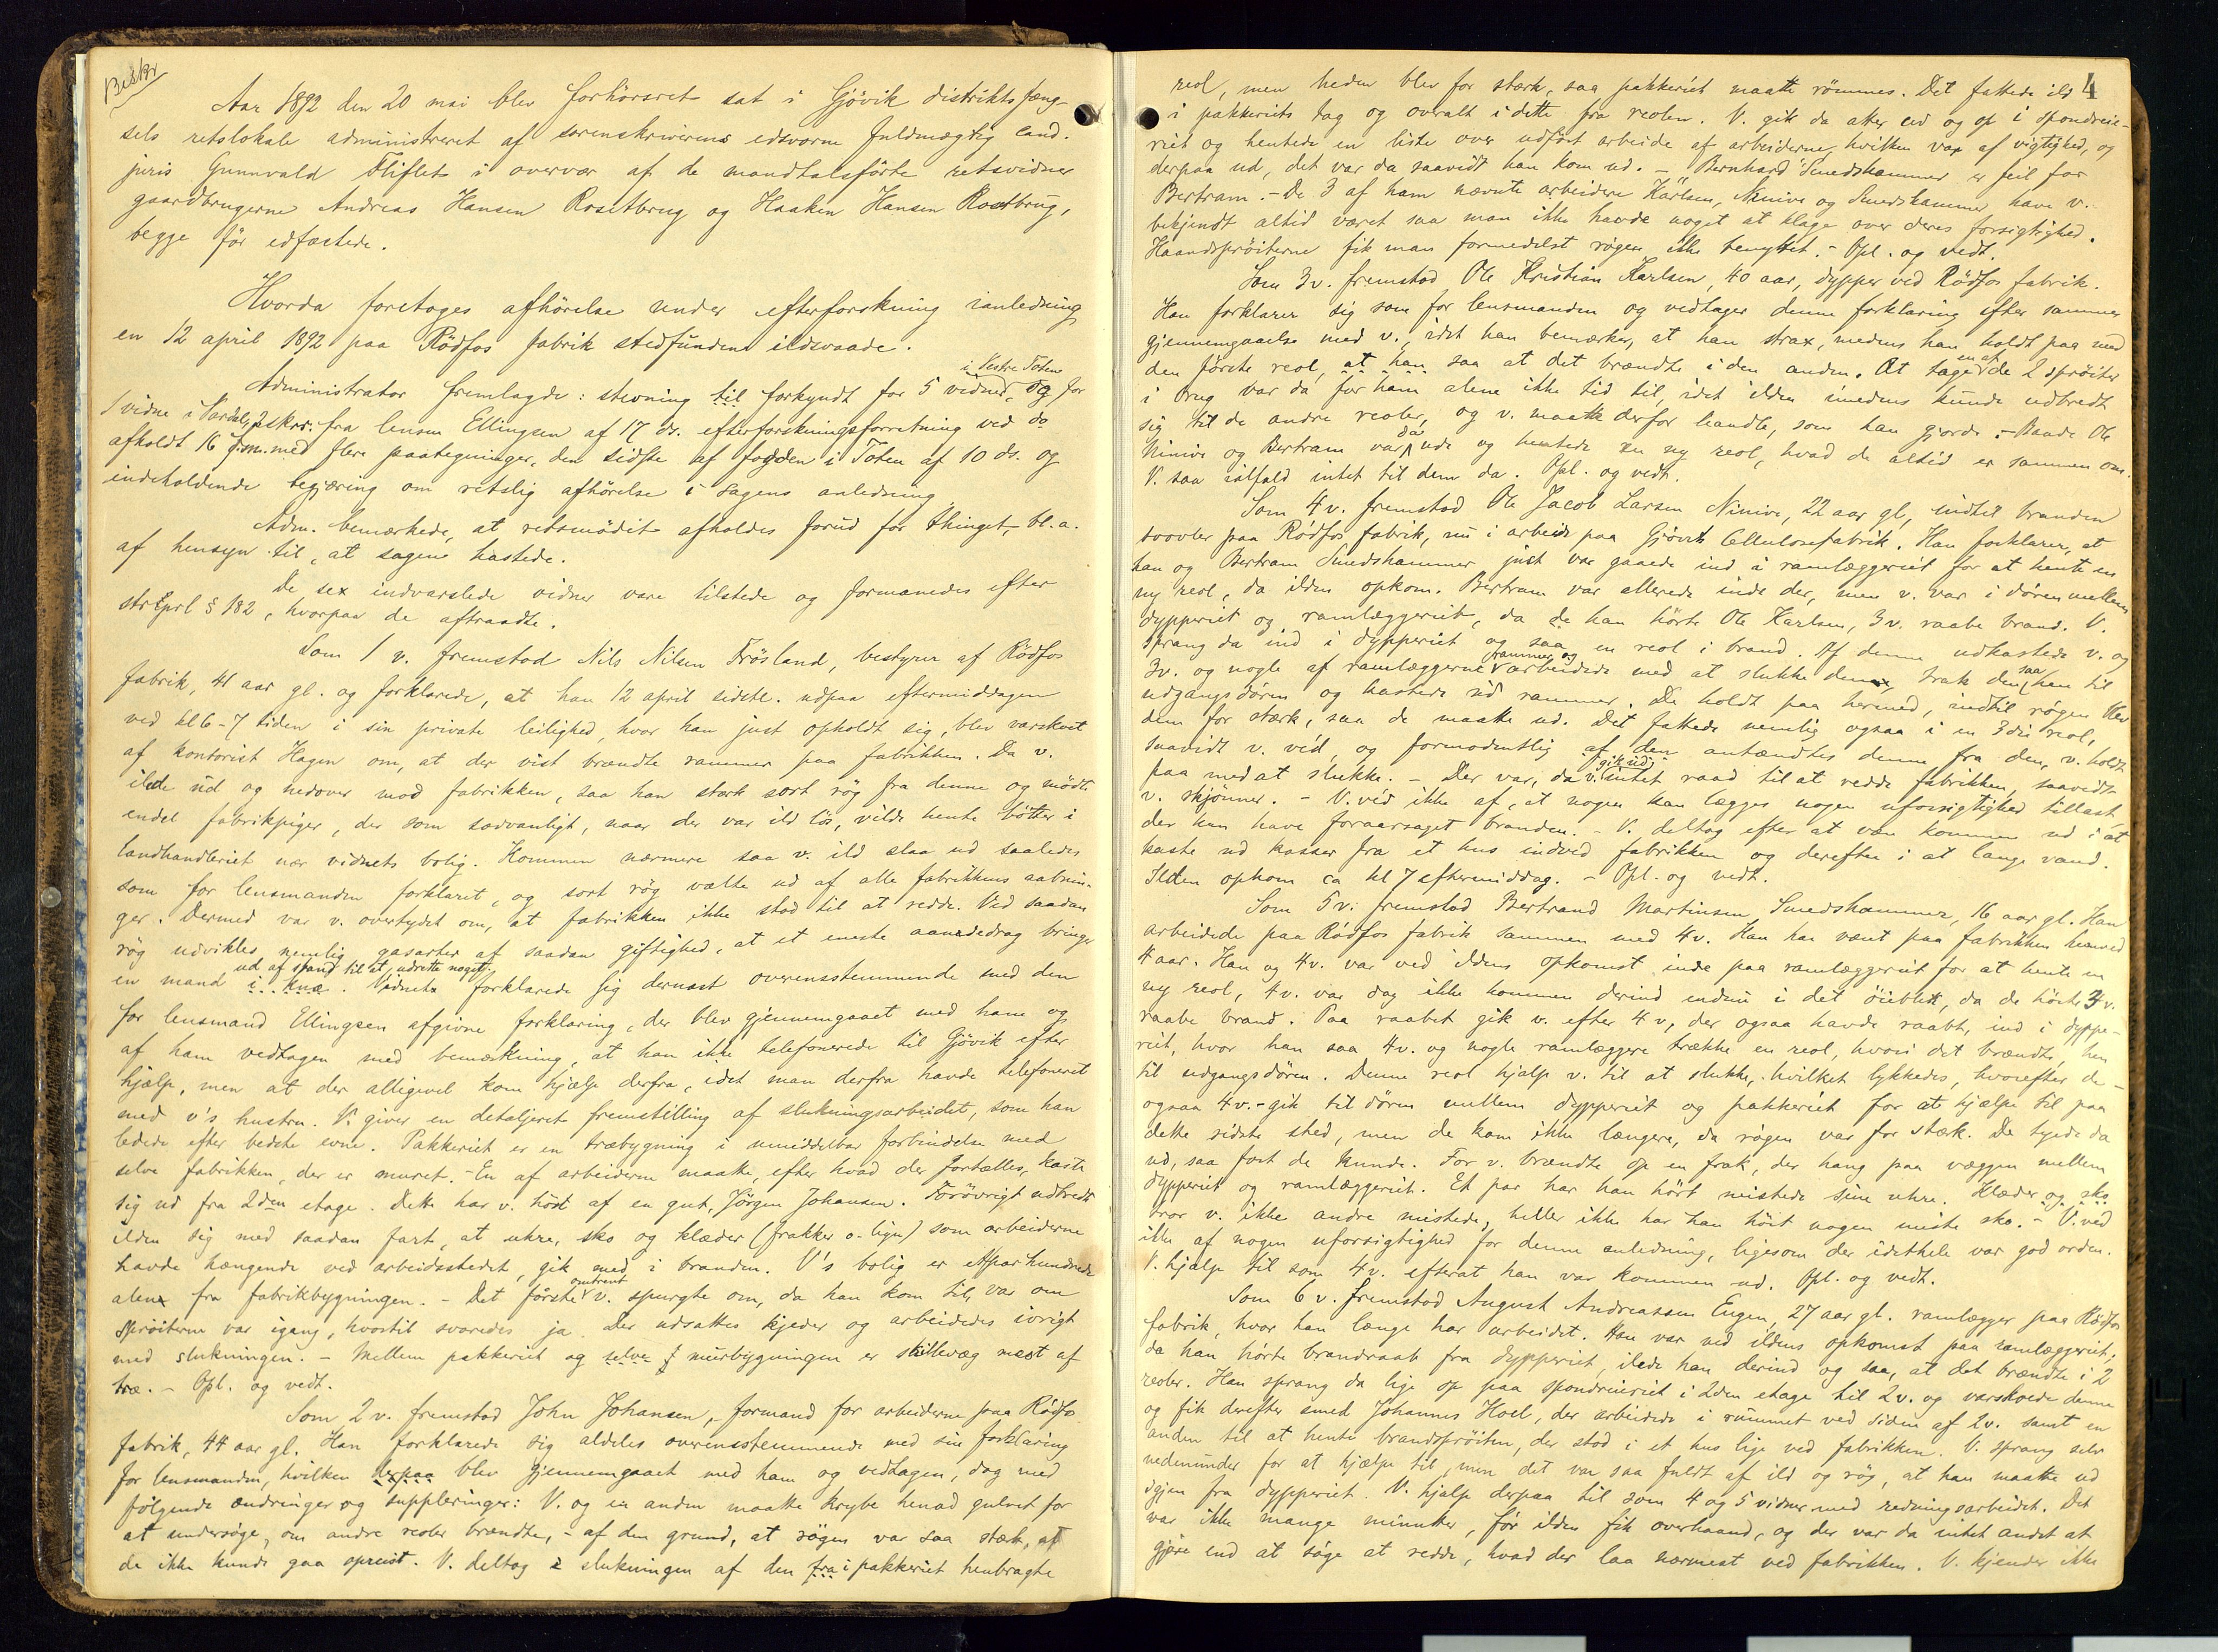 Beskr
Aar 1892 den 20 mai blev forhörsret sat i Gjövik distriktsfæng-
sels retslokale administreret af sorenskriverens edsvorne fuldmægtig cand.
juris Gunnvald Fliflet i overvær af de mandtalsförte retsvidner
gaardbrugerne Andreas Hansen Rosetbrug og Haaken Hansen Rosetbrug,
begge för edfæstede.
Hvorda foretoges afhörelse under efterforskning ianledning
en 12 april 1892 paa Rödfos fabrik stedfunden ildsvaade.
Administrator fremlagde: stevning til forkyndt for 5 vidner i Vestre Toten og for
1 vidne i Vardal, 2 skrr. fra lensm Ellingsen af 17 ds. efterforskningsforretning ved do
afholdt 16 f.m. med flere paategninger, den sidste af fogden i Toten af 10 ds. og
indeholdende begjæring om retslig afhörelse i sagens anledning.
Adm. bemærkede, at retsmödet afholdes forud for thinget, bl.a.
af hensyn til, at sagen hastede.
De sex indvarslede vidner vare tilstede og formanedes efter
strfprl § 182, hvorpaa de aftraadte.
Som 1 v. fremstod Nils Nilsen Frösland, bestyrer af Rödfos
fabrik, 41 aar gl. og forklarede, at han 12 april sidstl. udpaa eftermiddagen
ved kl 6-7 tiden i sin private leilighed, hvor han just opholdt sig, blev varskoet
af kontorist Hagen om, at der vist brændte rammer paa fabrikken. Da v.
ilede ud og nedover mod fabrikken, saa han stærk sort røg fra denne og mödte
endel fabrikpiger, der som sædvanligt, naar der var ild lös, vilde hente bötter i
landhandleriet nær vidnets bolig. Kommen nærmere saa v. ild slaa ud saaledes
som for lensmanden forklaret, og sort røg vælte ud af alle fabrikkens aabnin-
ger. Dermed var v. overtydet om, at fabrikken ikke stod til at redde. Ved saadan
røg udvikles nemlig gasarter af saadan giftighed, at et eneste aandedrag bringer
en mand i knæ. ud af stand til at udrette noget. Vidnet forklarede sig dernæst overensstemmende med den
for lensmand Ellingsen afgivne forklaring, der blev gjennemgaaet med ham og
af ham vedtagen med bemærkning, at han ikke telefonerede til Gjövik efter
hjælp, men at der alligevel kom hjælp derfra, idet man derfra havde telefoneret
med v's hustru. V. giver en detaljeret fremstilling af slukningsarbeidet, som han
ledede efter bedste evne. Pakkeriet er en træbygning i umiddelbar forbindelse med
selve fabrikken, der er muret. - En af arbeiderne maatte, efter hvad der fortælles, kaste
sig ud fra 2den etage. Dette har v. hört af en gut, Jörgen Johansen. Forövrigt udbredte
ilden sig med saadan fart, at uhre, sko og klæder (frakker o. lign) som arbeiderne
havde hængende ved arbeidsstedet, gik med i branden. V's bolig er et par hundrede
alen fra fabrikbygningen. - Det förste omtrent v. spurgte om, da han kom til, var om
spröiterne var igang, hvortil svaredes ja. Der udsattes kjeder og arbeidedes ivrigt
med slukningen. - Mellem pakkeriet og selve murbygningen er skillevæg mest af
træ. - Opl. og vedt.
Som 2 v. fremstod John Johansen, formand for arbeiderne paa Rödfos
fabrik, 44 aar gl. Han forklarede sig aldeles overensstemmende med sin forklaring
for lensmanden, hvilken derpaa blev gjennemgaaet med ham og vedtagen, dog med
følgende ændringer og suppleringer: V. og en anden maatte krybe henad gulvet for
at undersöge, om andre reoler brændte, - af den grund, at rögen var saa stærk, at
de ikke kunde gaa opreist. V. deltog i slukningen af den fra i pakkeriet henbragte
4
reol, men heden blev for stærk, saa pakkeriet maatte römmes. Det fattede ild
i pakkeriets tag og overalt i dette fra reolen. V. gik da atter ud og op i spondreie-
riet og hentede en liste over udført arbeide af arbeiderne, hvilken var af vigtighed, og
derpaa ud, det var da saavidt han kom ud. - "Bernhard" Smedshammer er feil for
Bertram. - De 3 af ham nævnte arbeidere Karlsen, Ninive og Smedshammer have v.
bekjendt altid været saa man ikke havde noget at klage over deres forsigtighed.
Haandspröiterne fik man formedelst rögen ikke benyttet. - Opl. og vedt.
Som 3 v. fremstod Ole Kristian Karlsen, 40 aar, dypper ved Rödfos fabrik.
Han forklarer sig som for lensmanden og vedtager denne forklaring efter sammes
gjennemgaaelse med v., idet han bemærker, at han strax, medens han holdt paa med
den förste reol, at han saa at det brændte i den anden. At tage en af de 2 spröiter
i brug var da for ham alene ikke tid til, idet ilden imedens kunde udbredt
sig til de andre reoler, og v. maatte derfor handle, som han gjorde. - Baade Ole
Ninive og Bertram var da ude og hentede en ny reol, hvad de altid er sammen om.
V. saa ialfald intet til dem da. Opl. og vedt.
Som 4 v. fremstod Ole Jacob Larsen Ninive, 22 aar gl, indtil branden
svovler paa Rödfos fabrik, nu i arbeide paa Gjövik Cellulosefabrik. Han forklarer, at
han og Bertram Smedshammer just var gaaede ind i ramlæggeriet for at hente en
ny reol, da ilden opkom. Bertram var allerede inde der, men v. var i dören mellem
dypperiet og ramlæggeriet, da de han hörte Ole Karlsen, 3 v. raabe brand. V.
sprang da ind i dypperiet og saa en reol i brand. Af denne udkastede v. og
3v. og nogle af ramlæggerne rammer og arbeidede med at slukke dem, trak den saa hen til
udgangsdören og kastede ud rammer. De holdt paa hermed, indtil rögen blev
dem for stærk, saa de maatte ud. Det fattede nemlig ogsaa i en 3die reol,
saavidt v. véd, og formodentlig af den antændtes denne fra den, v. holdt
paa med at slukke. - Der var, da v. gik ud intet raad til at redde fabrikken, saavidt
v. skjönner. - V. véd ikke af, at nogen kan lægges nogen uforsigtighed tillast,
der kan have foraarsaget branden. - V. deltog efter at være kommen ud i at
kaste ud kasser fra et hus indved fabrikken og derefter i at lange vand.
Ilden opkom ca kl 7 eftermiddag. - Opl. og vedt.
Som 5 v. fremstod Bertrand Martinsen Smedshammer, 16 aar gl. Han
arbeidede paa Rödfos fabrik sammen med 4v. Han har vænt paa fabrikken henved
4 aar. Han og 4 v. var ved ildens opkomst inde paa ramlæggeriet for at hente en
ny reol, 4 v. var dog ikke kommen derind endnu i det öieblik, da de hörte 3 v.
raabe brand. Paa raabet gik v. efter 4 v, der ogsaa havde raabt, ind i dyppe-
riet, hvor han saa 4v. og nogle ramlæggere trække en reol, hvori det brændte, hen
til udgangsdören. Denne reol hjalp v. til at slukke, hvilket lykkedes, hvorefter de -
ogsaa 4v. - gik til dören mellem dypperiet og pakkeriet for at hjælpe til paa
dette sidste sted, men de kom ikke længere, da rögen var for stærk. De tyede da
ud, saa fort de kunde. For v. brændte op en frak, der hang paa væggen mellem
dypperiet og ramlæggeriet. Et par har han hört mistede sine uhre. Klæder og sko
tror v. ikke andre mistede, heller ikke har han hört nogen miste sko. - V. ved
ikke af nogen uforsigtighed for denne anledning, ligesom der idethele var god orden.
V. hjalp til som 4 v. efterat han var kommen ud. Opl. og vedt.
Som 6 v. fremstod August Andreassen Engen, 27 aar gl. ramlægger paa Rödfos
fabrik, hvor han længe har arbeidet. Han var ved ildens opkomst paa ramlæggeriet;
da han hörte brandraab fra dypperiet, ilede han derind og saa, at det brændte i 2
reoler. Han sprang da lige op paa spondreieriet i 2den etage til 2 v. og varskoede denne
og fik derefter smed Johannes Hoel, der arbeidede i rummet ved siden af 2v. samt en
anden til at hente brandspröiten, der stod i et hus lige ved fabrikken. V. sprang selv
nedenunder for at hjælpe til, men det var saa fuldt af ild og røg, at han maatte ud
igjen fra dypperiet. V. hjalp derpaa til som 4 og 5 vidner med redningsarbeidet. Det
var ikke mange minutter, för ilden fik overhaand, og der var da intet andet at
gjøre end at söge at redde, hvad der laa nærmest ved fabrikken. V. kjender ikke